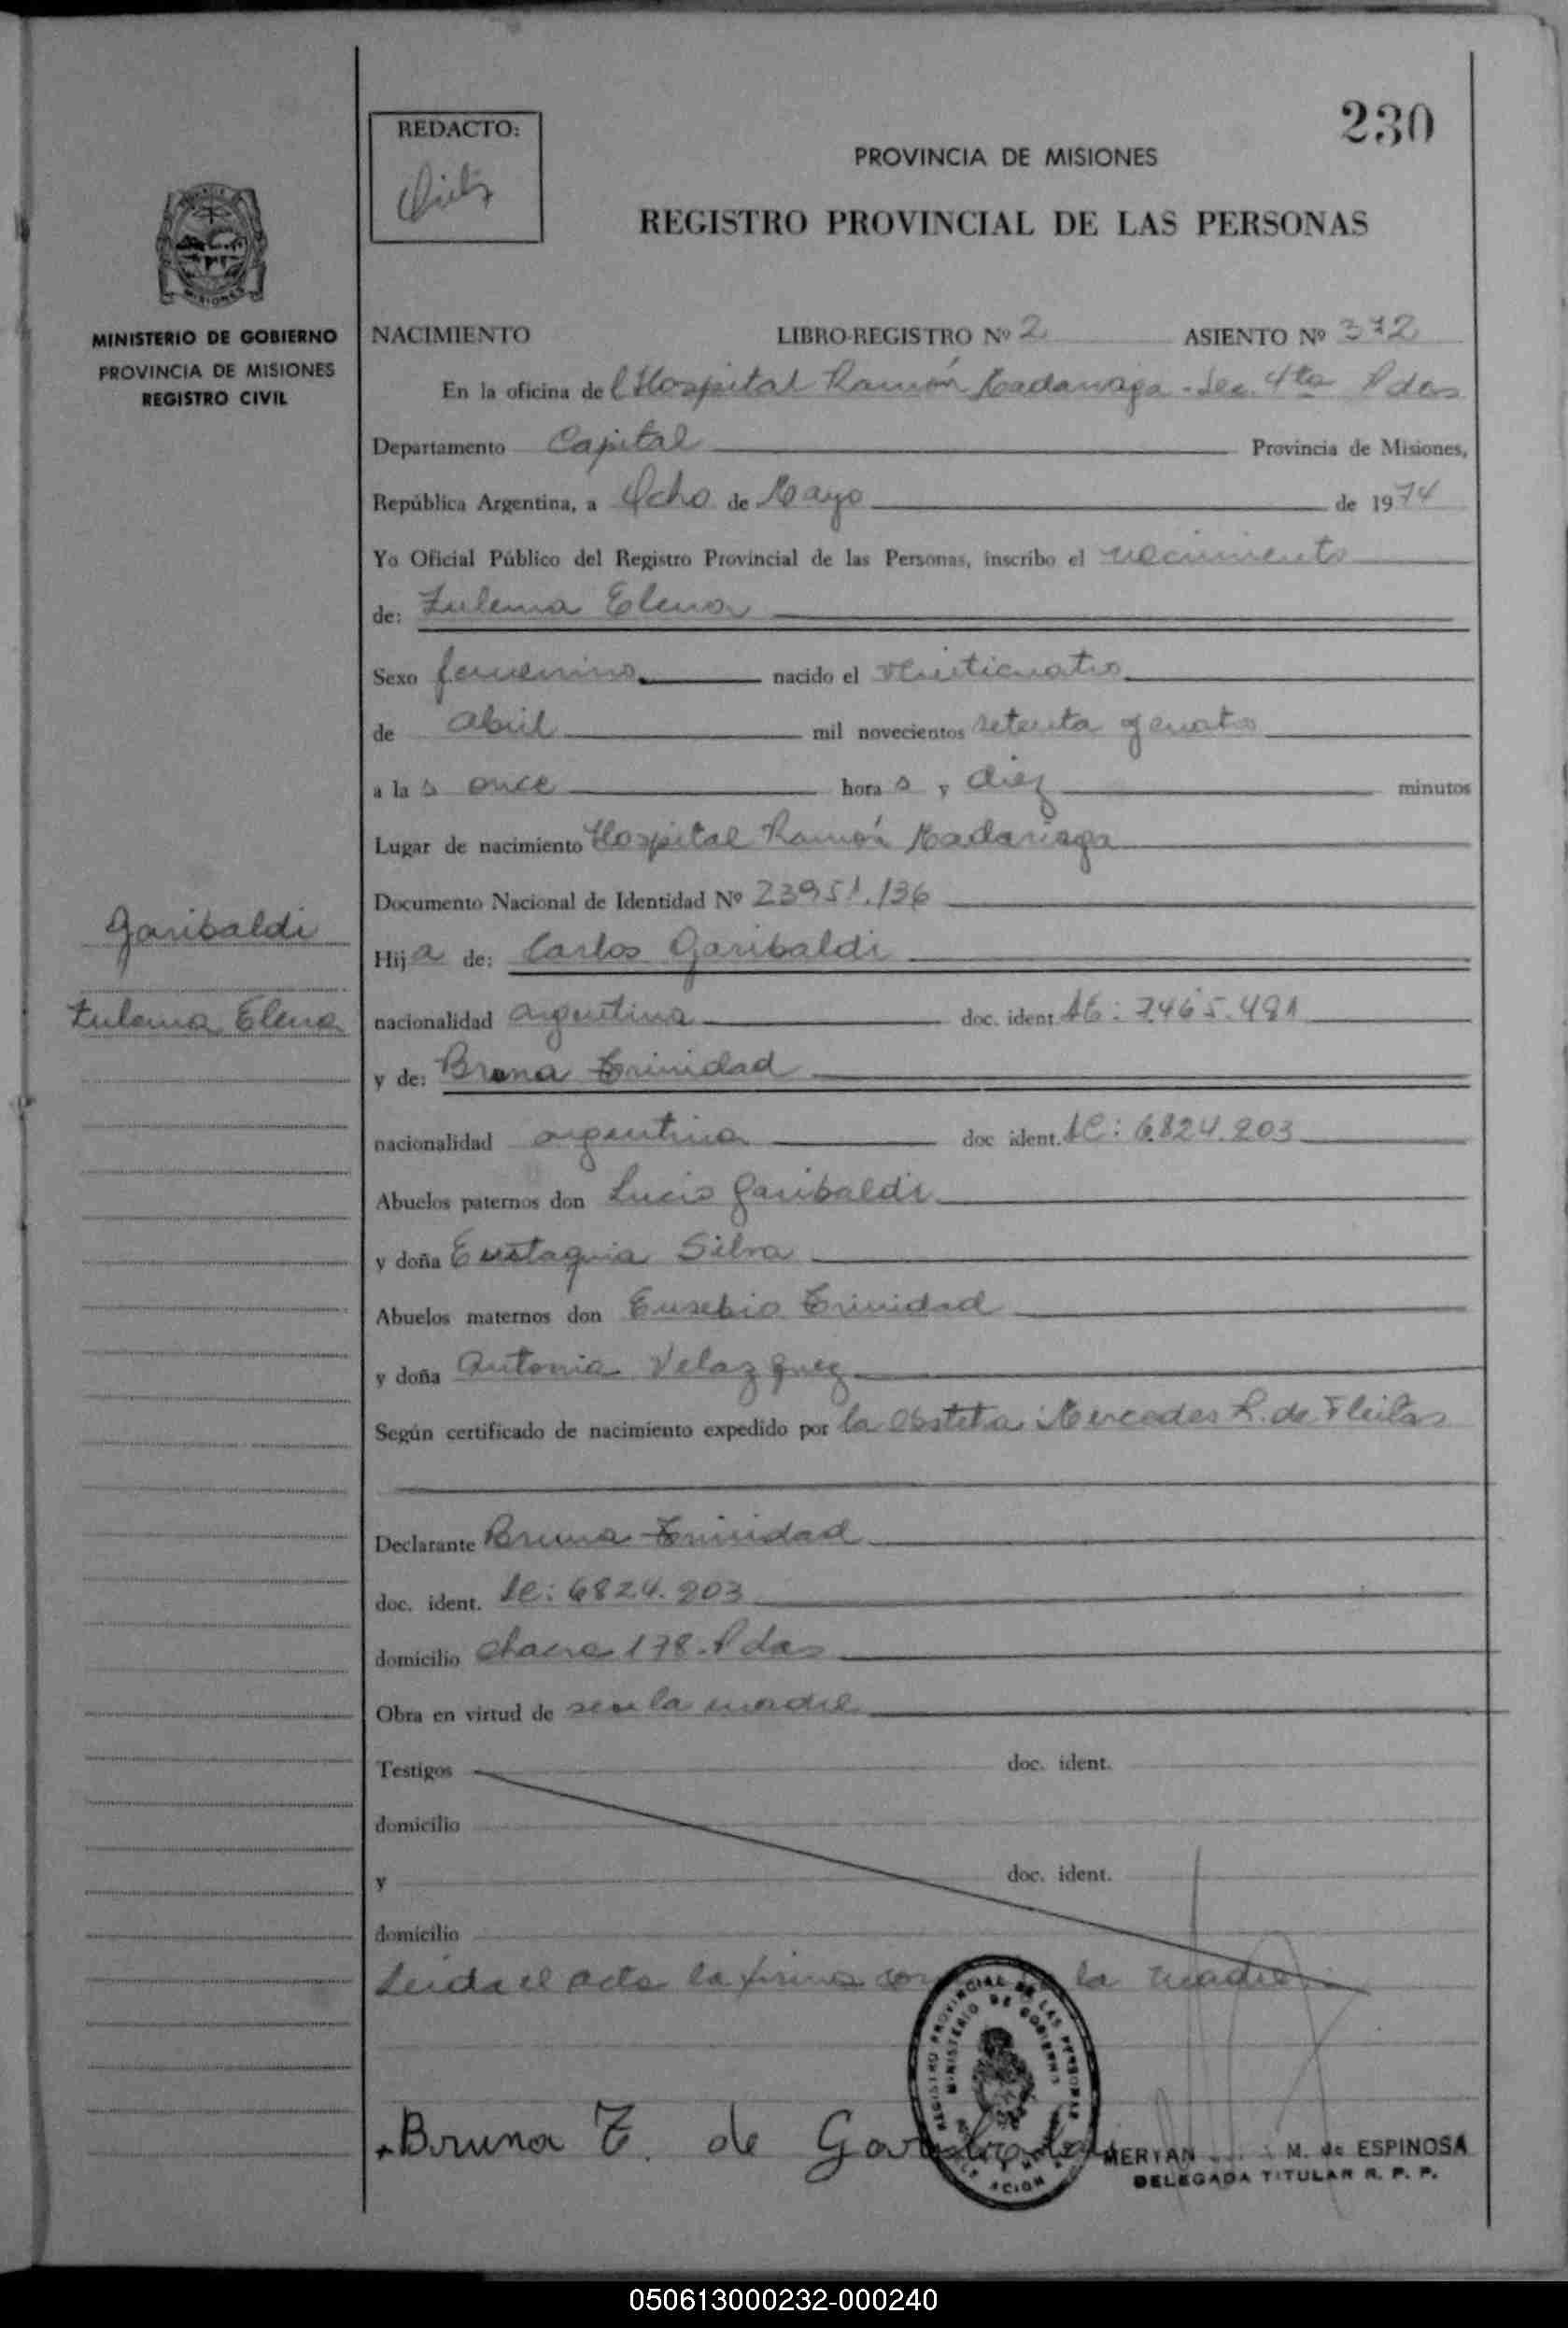 230
REDACTO:
PROVINCIA DE MISIONES
REGISTRO PROVINCIAL DE LAS PERSONAS
MISIONES
MINISTERIO DE GOBIERNO
PROVINCIA DE MISIONES
REGISTRO CIVIL
NACIMIENTO LIBRO-REGISTRO Nº 2 ASIENTO Nº 372
En la oficina del Hospital Ramón Madariaga - Sec. 4ta Pdas
Departamento Capital Provincia de Misiones,
República Argentina, a Ocho de Mayo de 1974
Yo Oficial Público del Registro Provincial de las Personas, inscribo el nacimiento
de: Zulema Elena
Sexo femenino nacido el veinticuatro
de abril mil novecientos setenta y cuatro
a las once horas y diez minutos
Lugar de nacimiento Hospital Ramón Madariaga
Documento Nacional de Identidad Nº 23951.136
Garibaldi
Hija de: Carlos Garibaldi
Zulema Elena
nacionalidad argentina doc. ident. LE: 7465.491
y de: Bruna Trinidad
nacionalidad argentina doc ident. LC: 6824.203
Abuelos paternos don Lucio Garibaldi
y doña Eustaquia Silva
Abuelos maternos don Eusebio Trinidad
y doña Antonia Velazquez
Según certificado de nacimiento expedido por la Obsteta Mercedes R. de Fleitas
Declarante Bruna Trinidad
doc. ident. LC: 6824.203
domicilio chacra 178 - Pdas
Obra en virtud de ser la madre
Testigos doc. ident.
domicilio
y doc. ident.
domicilio
Leida el acta la firma la madre
REGISTRO PROVINCIAL DE LAS PERSONAS
MINISTERIO DE GOBIERNO
Bruna T. de Garibaldi
M. de ESPINOSA
DELEGADA TITULAR R. P. P.
050613000232-000240